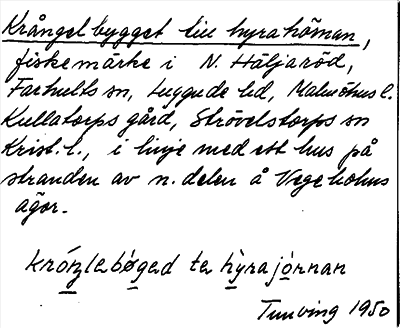 Krångelbygget till hyrahörnan,
fiskemärke i N. Häljaröd,
Farhults sn, Luggude hd, Malmöhus l.
Kullatorps gård, Strövelstorps sn
Krist. l., i linje med ett hus på
stranden av n. delen å Vegeholms
ägor.
te hyrajörnan
Tunving 1950